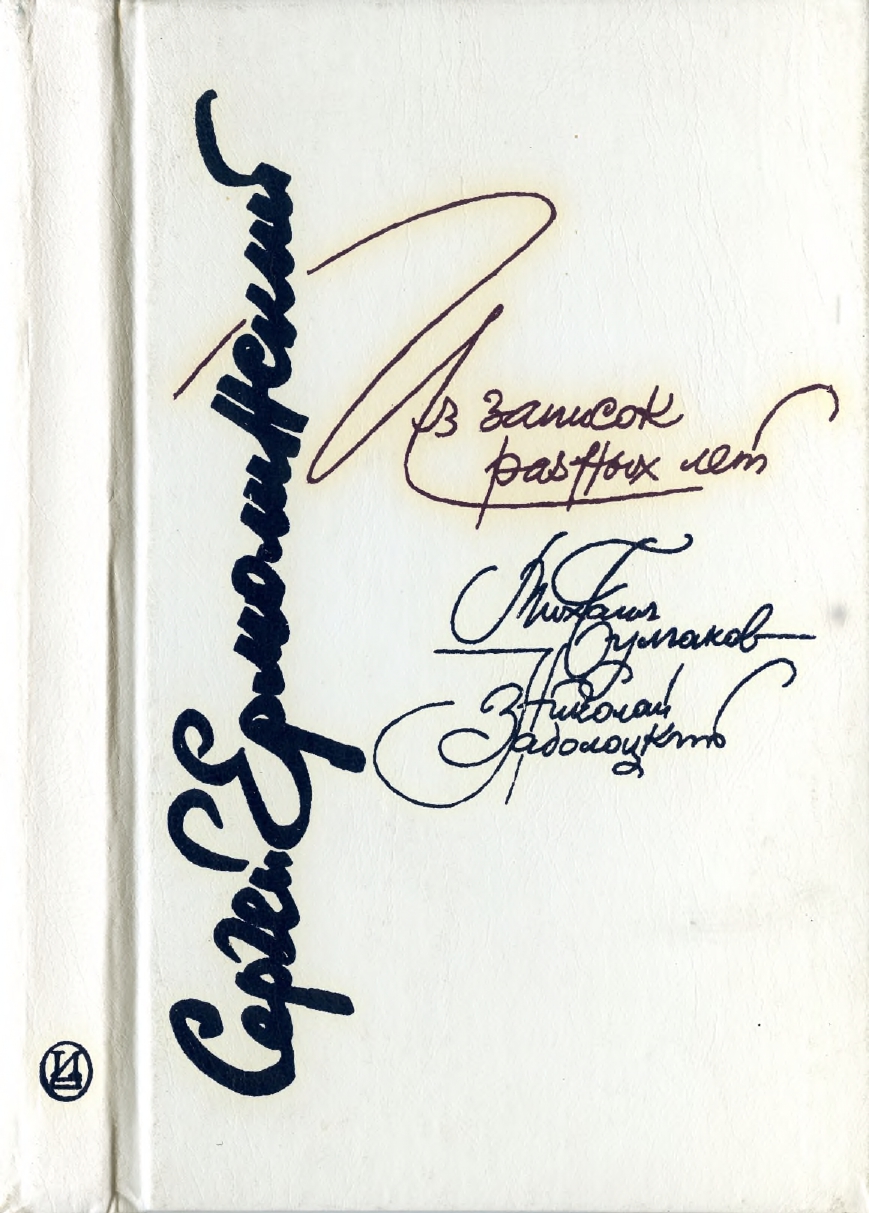 Сергей Ермолинский
Из записок
разных лет
Михаил
Булгаков
Николай
Заболоцкий